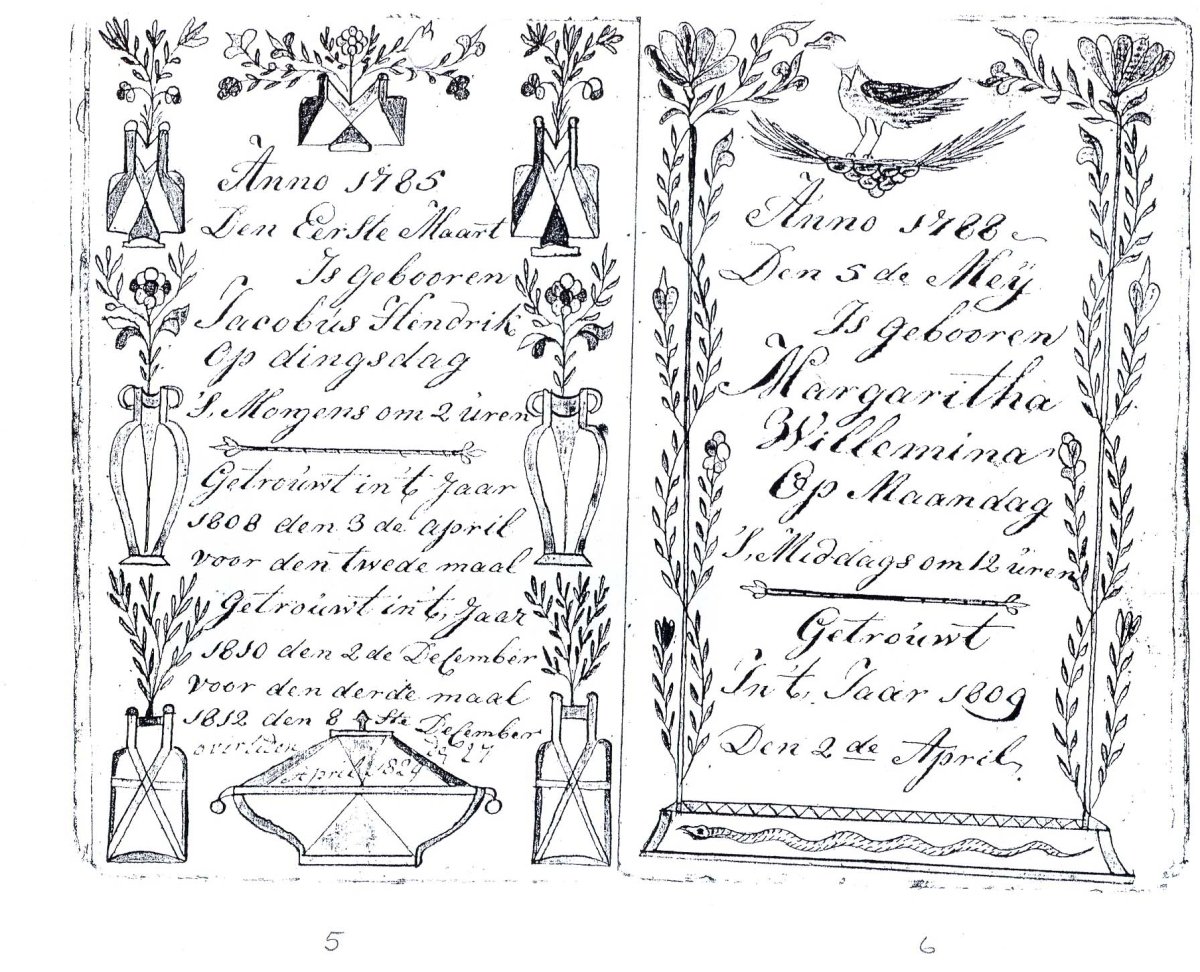 Anno 1785
Den Eerste Maart
Is gebooren
Jacobus Hendrik
Op dingsdag
'S, Morgens om 2 üren
Getroúwt in't Jaar
1808 den 3 de april
voor den twede maal
Getroúwt in't, Jaar
1810 den 2 de December
voor den derde maal
1812 den 8 ste December
overleden 27
April 1829
5
Anno 1788
Den 5 de Meÿ
Is gebooren
Margaritha
Willemina
Op Maandag
'S, Middags om 12 üren
Getroúwt
In t, Jaar 1809
Den 2 de April,
6